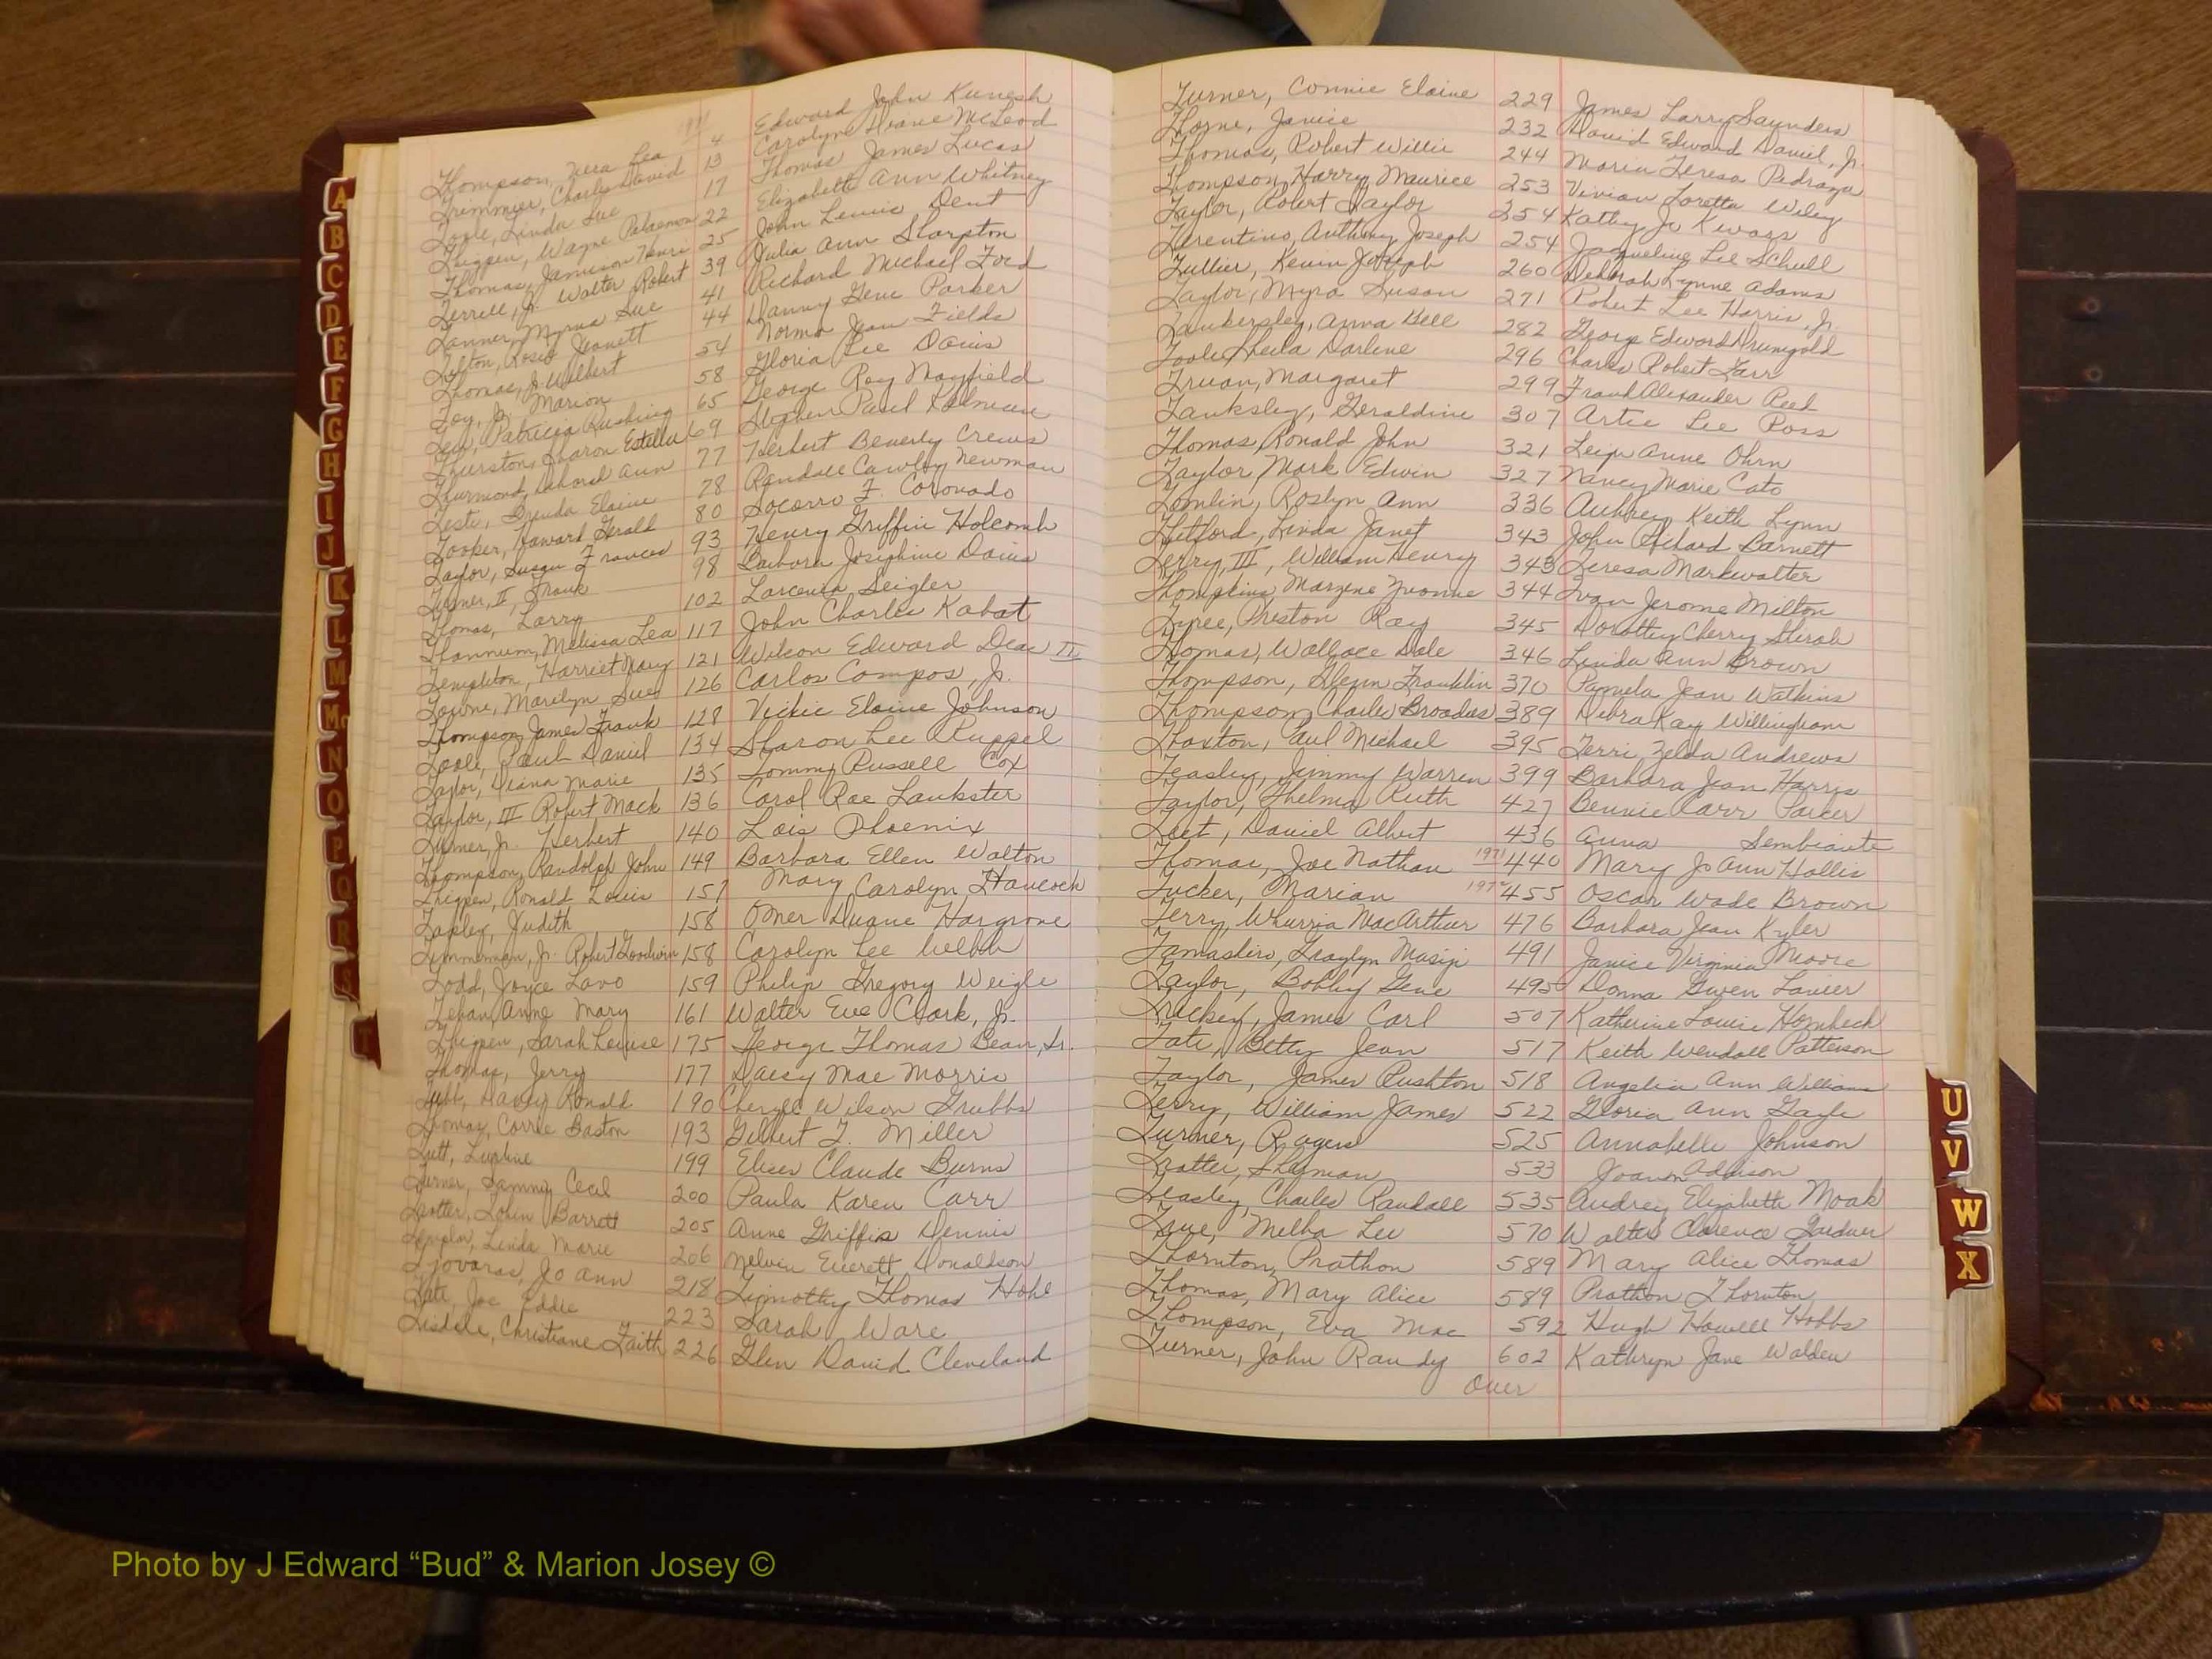 Thompson, Vera Lea 4 Edward John Kunesh
Trimmier, Charles David 13 Carolyn Diane McLeod
Toole, Linda Sue 17 Thomas James Lucas
Thigpen, Wayne 22 Elizabeth Ann Whitney
Thomas, Jameson 25 John Lewis Dent
Terrell, Jr. Walter Robert 39 Julia Ann Sharpton
Tanner, Myrna Sue 41 Richard Michael Ford
Tilton, Rosie Jeanett 44 Danny Gene Parker
Thomas, Jr. Wilbert 54 Norma Jean Fields
Toy, Jr. Marion 58 Gloria Lee Davis
Patricia Rushing 65 George Roy Mayfield
Thurston, Sharon Estella 69 Stephen Paul
Thurmond, Ann 77 Herbert Beverly Crews
Brenda Elaine 78 Randall Cawley Newman
Tooker, Howard Gerald 80 Socorro F. Coronado
Taylor, Susan Frances 93 Henry Griffin Holcomb
Turner, II, Frank 98 Barbara Josephine Davis
Thomas, Larry 102 Larcenia Seigler
Thannum, Melissa Lea 117 John Charles Kabat
Templeton, Harriet Mary 121 Wilson Edward Dean II
Towne, Marilyn Sue 126 Carlos Campos, Jr.
Thompson, James Frank 128 Vickie Elaine Johnson
Toole, Paul Daniel 134 Sharon Lee Ruppel
Taylor, Diana Marie 135 Tommy Russell Cox
Taylor, III Robert Mack 136 Carol Rae Lankster
Turner, Jr. Herbert 140 Lois Phoenix
Thompson, Randolph John 149 Barbara Ellen Walton
Thigpen, Ronald Louis 157 Mary Carolyn Hancock
Tapley, Judith 158 Omer Duane Hargrove
Timmerman, Jr. Robert Goodwin 158 Carolyn Lee Webb
Todd, Joyce Lavo 159 Philip Gregory Weigle
Teban, Anne Mary 161 Walter Eve Clark, Jr.
Thigpen, Sarah Louise 175 George Thomas Bean, Sr.
Thomas, Jerry 177 Daisy Mae Morris
Tubb, Ronald 190 Cheryle Wilson Grubbs
Thomas, Corrie Baston 193 Gilbert T. Miller
Tutt, 199 Elises Claude Burns
Turner, Sammy Cecil 200 Paula Karen Carr
Trotter, John Barrett 205 Anne Griffis Dennis
Templar, Linda Marie 206 Melvin Everett Donaldson
Tjovaras, Jo Ann 218 Timothy Thomas Hohl
Tate, Joe Eddie 223 Sarah Ware
Tisdale, Christiane Faith 226 Glen David Cleveland
Turner, Connie Elaine 229 James Larry Saunders
Thorne, Janice 232 David Edward Daniel, Jr.
Thomas, Robert Willie 244 Maria Teresa Pedraza
Thompson, Harry Maurice 253 Vivian Loretta Wiley
Taylor, Robert Taylor 254 Kathy Jo Kwass
Tarentino, Anthony Joseph 254 Jaqueline Lee Schull
Tullier, Kevin Joseph 260 Deborah Lynne Adams
Taylor, Myra Susan 271 Robert Lee Harris, Jr.
Tankersley, Anna Bell 282 George Edward Drumgold
Toole, Sheila Darlene 296 Charles Robert Farr
Truan, Margaret 299 Frank Alexander Reed
Tanksley, Geraldine 307 Artie Lee Ross
Thomas, Ronald John 321 Leigh Anne Ohrn
Taylor, Mark Edwin 327 Nancy Marie Cato
Tomlin, Roslyn Ann 336 Aubrey Keith Lynn
Titford, Linda Janet 343 John Richard Barnett
Terry, III, William Henry 343 Teresa Markwalter
Thompkins, Marzene Yvonne 344 Ivan Jerome Milton
Tyree, Preston Ray 345 Dorothy Cherry Shrob
Thomas, Wallace Dale 346 Linda Ann Brown
Thompson, Glenn Franklin 370 Pamela Jean Watkins
Thompson, Charles Broadus 389 Debra Kay Willingham
Thaxton, Paul Michael 395 Terri Zelda Andrews
Teasley, Jimmy Warren 399 Barbara Jean Harris
Taylor, Thelma Ruth 427 Bennie Carr Parker
Toet, Daniel Albert 436 Anna Sembiante
Thomas, Joe Nathan 1971 440 Mary Jo Ann Hollis
Tucker, Marian 455 Oscar Wade Brown
Terry, Whurria MacArthur 476 Barbara Jean Kyler
Tamashiro, Graylyn Masiji 491 Janice Virginia Moore
Taylor, Bobby Gene 495 Donna Gwen Lanier
Trickey, James Carl 507 Katherine Louise Hornbeck
Tate, Betty Jean 517 Keith Wendall Patterson
Taylor, James Rushton 518 Angelia Ann Williams
Terry, William James 522 Gloria Ann Gayle
Turner, Rogers 525 Annabelle Johnson
Tratter, Sherman 533 Joann Addison
Teasley, Charles Randall 535 Audrey Elizabeth Moak
True, Melba Lee 570 Walter Clarence Gardner
Thornton, Prathon 589 Mary Alice Thomas
Thomas, Mary Alice 589 Prathon Thornton
Thompson, Eva Mae 592 Hugh Howell Hobbs
Turner, John Randy 602 Kathryn Jane Walden
Over
A
B
C
D
E
F
G
H
I
J
K
L
M
Mc
N
O
P
Q
R
S
T
U
V
W
X
Photo by J Edward “Bud” & Marion Josey ©